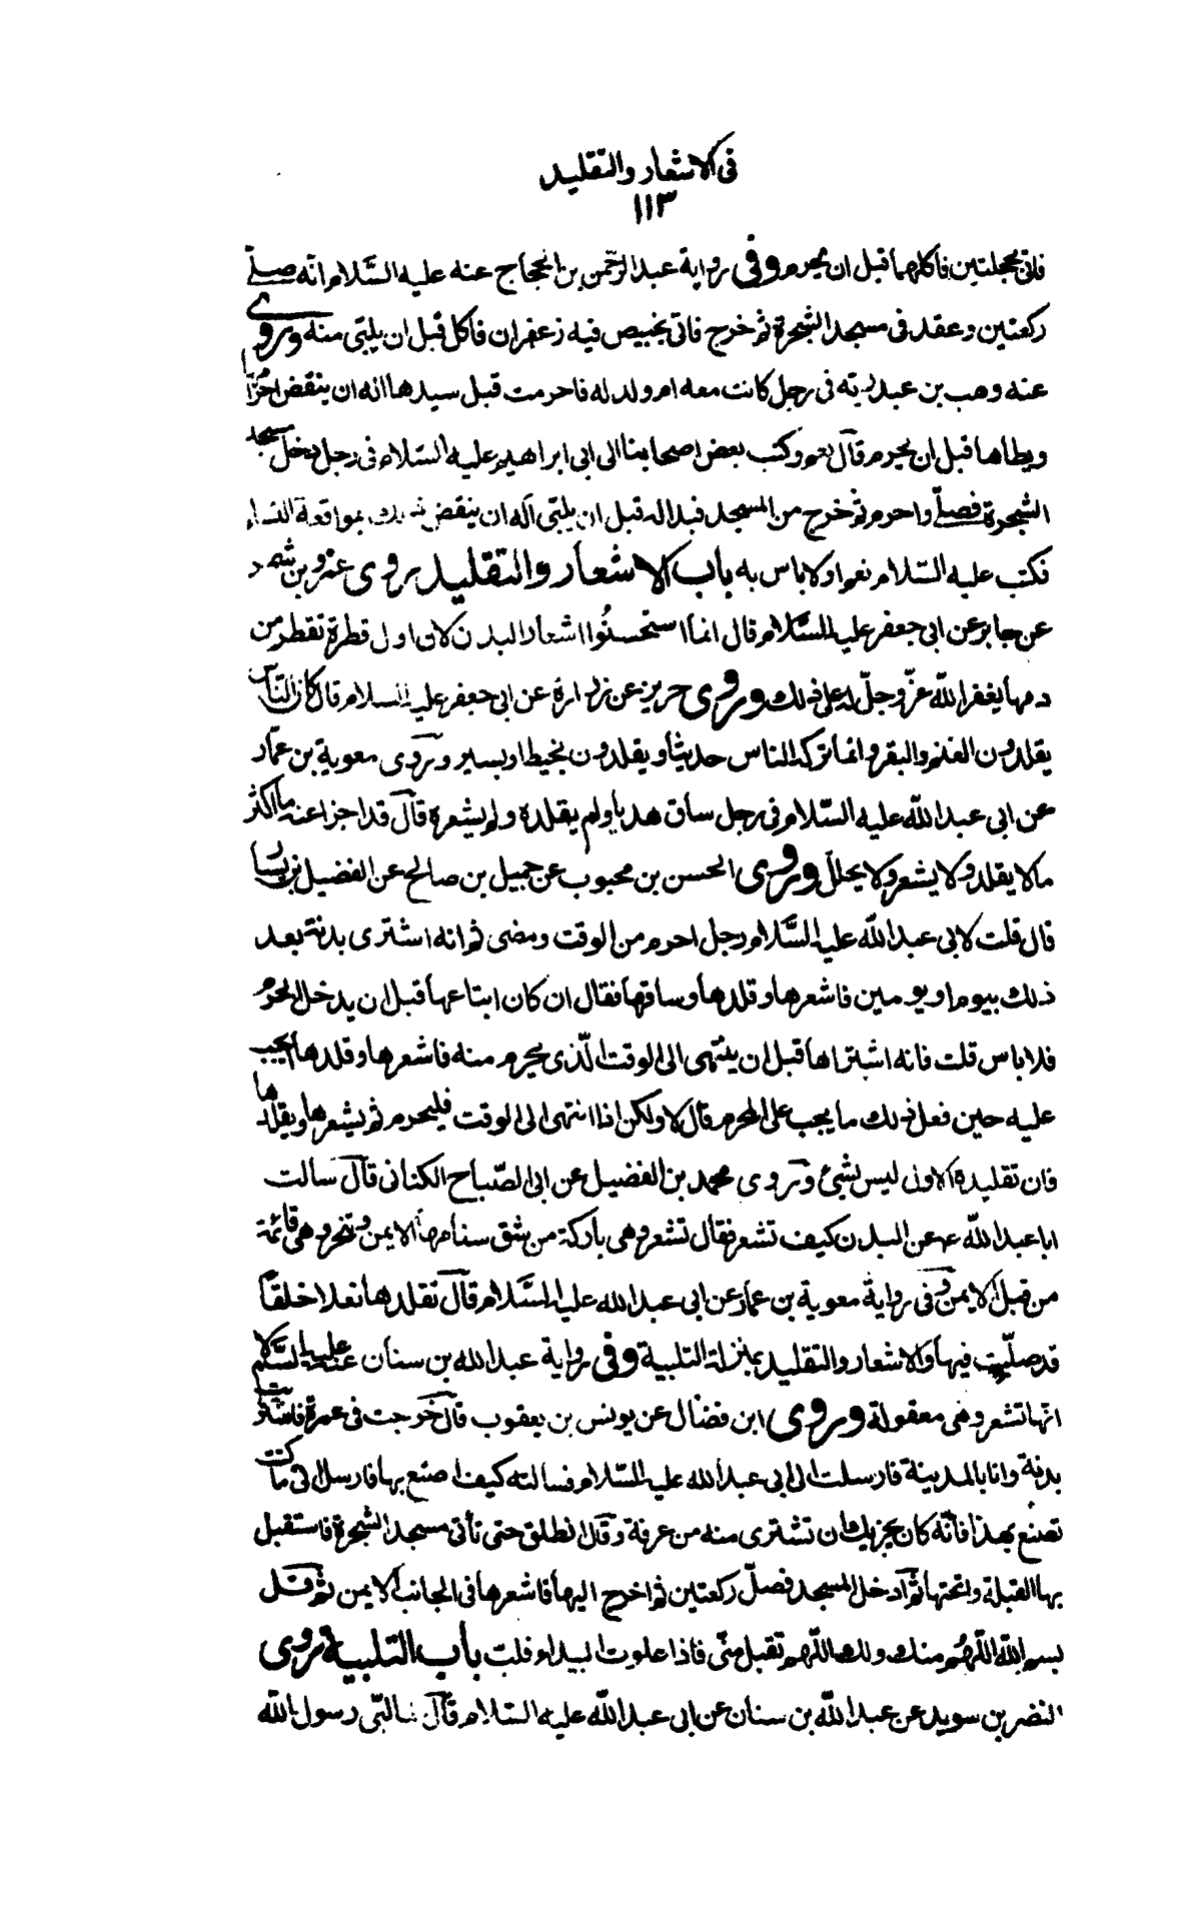 فى الاشعار والتقليد
١١٣
فاتى بحجلتين فاكلهما قبل ان يحرم وفى رواية عبد الرحمن بن الحجاج عنه عليه السَّلام انّه صلّى
ركعتين وعقد فى مسجد الشجرة ثم خرج فاتى بخبيص فيه زعفران فاكل قبل ان يلبّى منه وروى
عنه وهب بن عبد ربّه فى رجل كانت معه ام ولد له فاحرمت قبل سيدها اله ان ينقض احرامها
ويطاها قبل ان يحرم قال نعم وكتب بعض اصحابنا الى ابى ابراهيم عليه السّلام فى رجل دخل مسجد
الشجرة فصلّى واحرم ثم خرج من المسجد فبدا له قبل ان يلبّى اله ان ينقض ذلك بمواقعة النساء
فكتب عليه السّلام نعم او لا باس به باب الاشعار والتقليد روى عمرو بن شمر
عن جابر عن ابى جعفر عليه السَّلام قال انما استحسنُوا اشعار البدن لان اول قطرة تقطر من
دمها يغفر اللّه عزّ وجلّ له على ذلك وروى حريز عن زرارة عن ابى جعفر عليه السلام قال كان النّاس
يقلدون الغنم والبقر وانما تركه الناس حديثا ويقلدون بخيط او بسير وروى معوية بن عمّار
عن ابى عبد اللّه عليه السّلام فى رجل ساق هديا ولم يقلده ولم يشعره قال قد اجزا عنه ما اكثر
ما لا يقلد ولا يشعر ولا يجلل وروى الحسن بن محبوب عن جميل بن صالح عن الفضيل بن يسار
قال قلت لابى عبد اللّه عليه السَّلام رجل احرم من الوقت ومضى ثم انه اشترى بدنة بعد
ذلك بيوم او يومين فاشعرها وقلدها وساقها فقال ان كان ابتاعها قبل ان يدخل الحرم
فلا باس قلت فانه اشتراها قبل ان ينتهى الى الوقت الّذى يحرم منه فاشعرها وقلدها ايجب
عليه حين فعل ذلك ما يجب على المحرم قال لا ولكن اذا انتهى الى الوقت فليحرم ثم يشعرها ويقلدها
فان تقليده الاول ليس بشيئ وروى محمد بن الفضيل عن ابى الصّباح الكنانى قال سالت
ابا عبد اللّه ع عن البدن كيف تشعر فقال تشعر وهى باركة من شق سنامها الايمن وتنحر وهى قائمة
من قبل الايمن وفى رواية معوية بن عمار عن ابى عبد الله عليه السَّلام قال تقلدها نعلا خلقا
قد صلّيت فيها والاشعار والتقليد بمنزلة التلبية وفى رواية عبد الله بن سنان عنه عليه السَّلام
انها تشعر وهى معقولة وروى ابن فضال عن يونس بن يعقوب قال خرجت فى عمرة فاشتريت
بدنة وانا بالمدينة فارسلت الى ابى عبد الله عليه السّلام فسالته كيف اصنع بها فارسل الى ما كنت
تصنع بهذا فانّه كان يجزيك ان تشترى منه من عرفة وقال انطلق حتى تأتى مسجد الشجرة فاستقبل
بها القبلة وانخها ثم ادخل المسجد فصلّ ركعتين ثم اخرج اليها فاشعرها فى الجانب الايمن ثم قل
بسم اللّه اللّهُم منك ولك اللّهم تقبل منّى فاذا علوت البيداء فلبّ باب التلبية روى
النضر بن سويد عن عبد اللّه بن سنان عن ابى عبد اللّه عليه السّلام قال لما لبّى رسول اللّه